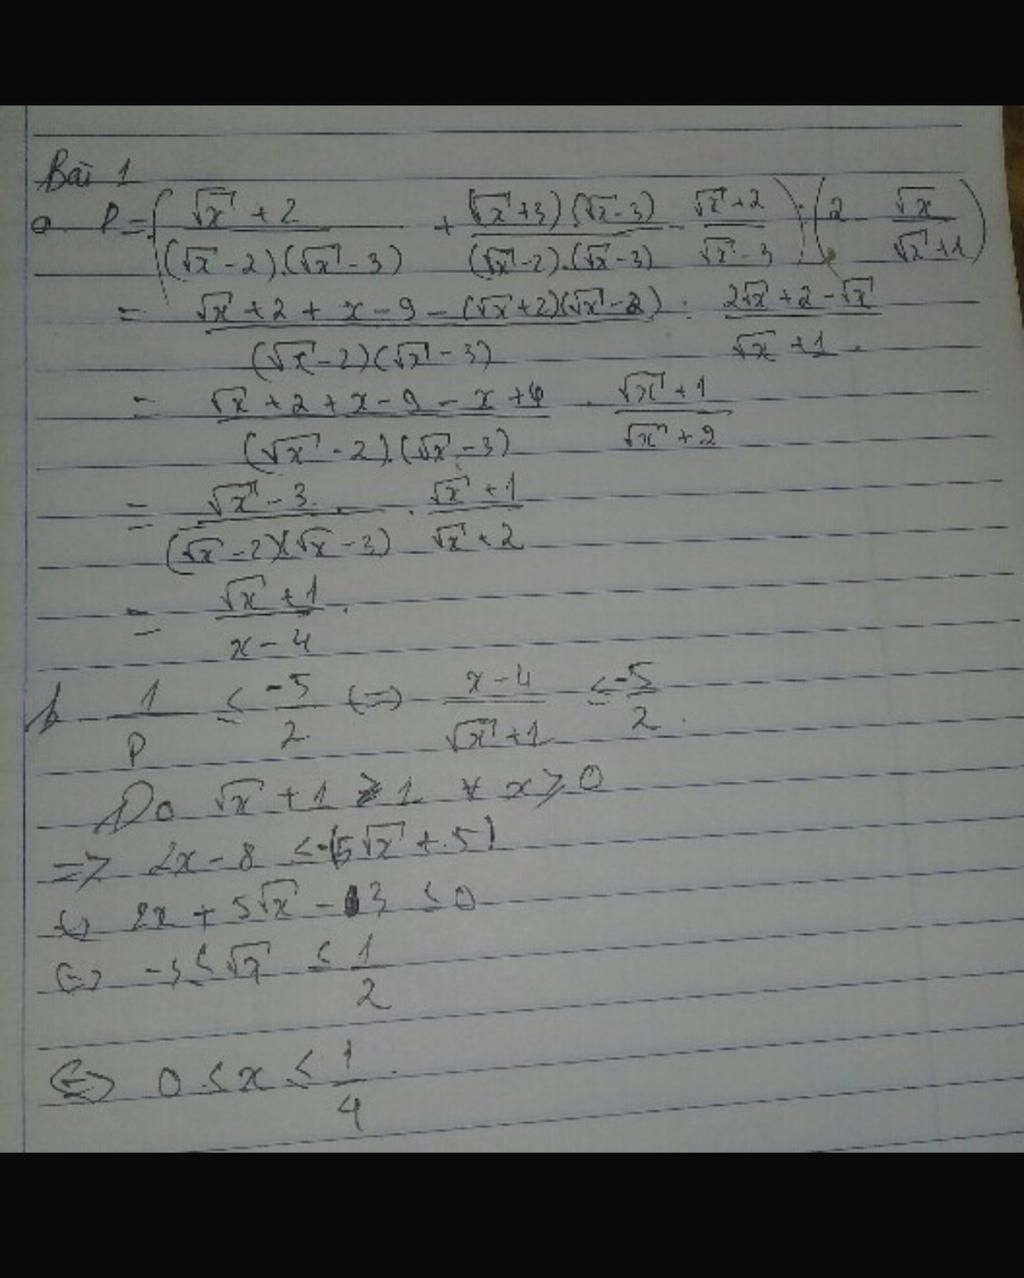 Bài 1
a. P = ( (√x + 2)/((√x - 2).(√x - 3)) + ((√x + 3).(√x - 3))/((√x - 2).(√x - 3)) - (√x + 2)/(√x - 3) ) : ( 2 - √x/(√x + 1) )
= (√x + 2 + x - 9 - (√x + 2)(√x - 2))/((√x - 2)(√x - 3)) : (2√x + 2 - √x)/(√x + 1).
= (√x + 2 + x - 9 - x + 4)/((√x - 2).(√x - 3)) . (√x + 1)/(√x + 2)
= (√x - 3)/((√x - 2)(√x - 3)) . (√x + 1)/(√x + 2)
= (√x + 1)/(x - 4).
b 1/P ≤ -5/2 (=) (x - 4)/(√x + 1) ≤ -5/2.
Do √x + 1 ≥ 1 ∀ x ≥ 0
=> 2x - 8 ≤ -(5√x + 5)
(=) 2x + 5√x - 3 ≤ 0
(=) -3 ≤ √x ≤ 1/2
(=) 0 ≤ x ≤ 1/4.